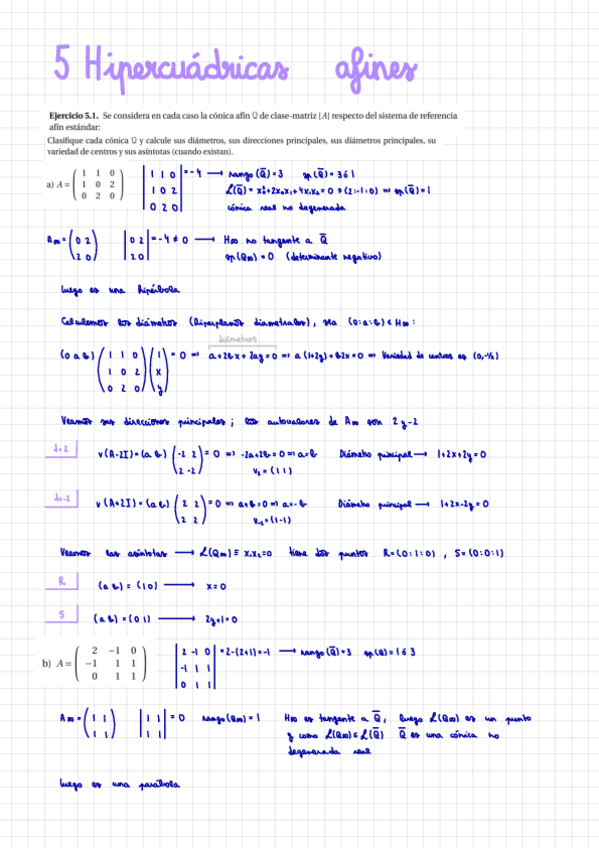 5 Hipercuádricas afines
Ejercicio 5.1. Se considera en cada caso la cónica afín Q de clase-matriz [A] respecto del sistema de referencia
afín estándar:
Clasifique cada cónica Q y calcule sus diámetros, sus direcciones principales, sus diámetros principales, su
variedad de centros y sus asíntotas (cuando existan).
a) A = ( 1 1 0 / 1 0 2 / 0 2 0 ) | 1 1 0 / 1 0 2 / 0 2 0 | = -4 → rango (Q̄) = 3 sp(Q̄) = 3 ó 1
L(Q̄) ≡ x₀²+2x₀x₁+4x₁x₂=0 ∌ (2:-1:0) ⇒ sp(Q̄)=1
cónica real no degenerada
A∞ = ( 0 2 / 2 0 ) | 0 2 / 2 0 | = -4 ≠ 0 → H∞ no tangente a Q̄
sp(Q∞) = 0 (determinante negativo)
Luego es una hipérbola
Calculemos los diámetros (hiperplanos diametrales), sea (0:a:b) ∈ H∞:
diámetros
(0 a b) ( 1 1 0 / 1 0 2 / 0 2 0 ) ( 1 / x / y ) = 0 ⇒ a+2bx+2ay=0 ⇒ a(1+2y)+b2x=0 ⇒ Variedad de centros es (0,-½)
Veamos sus direcciones principales; los autovalores de A∞ son 2 y -2
λ=2 v(A-2I)=(a b) ( -2 2 / 2 -2 ) = 0 ⇒ -2a+2b=0 ⇒ a=b Diámetro principal → 1+2x+2y=0
v₂=(1 1)
λ=-2 v(A+2I)=(a b) ( 2 2 / 2 2 ) = 0 ⇒ a+b=0 ⇒ a=-b Diámetro principal → 1+2x-2y=0
v₋₂=(1 -1)
Veamos las asíntotas → L(Q∞) ≡ x₁x₂=0 tiene dos puntos R=(0:1:0) , S=(0:0:1)
R (a b) = (1 0) → x=0
S (a b) = (0 1) → 2y+1=0
b) A = ( 2 -1 0 / -1 1 1 / 0 1 1 ) | 2 -1 0 / -1 1 1 / 0 1 1 | = 2-(2+1)=-1 → rango (Q̄)=3 sp(Q̄) = 1 ó 3
A∞ = ( 1 1 / 1 1 ) | 1 1 / 1 1 | = 0 rango (Q∞) = 1 H∞ es tangente a Q̄, luego L(Q∞) es un punto
y como L(Q∞) ⊆ L(Q̄) Q̄ es una cónica no
degenerada real
Luego es una parábola